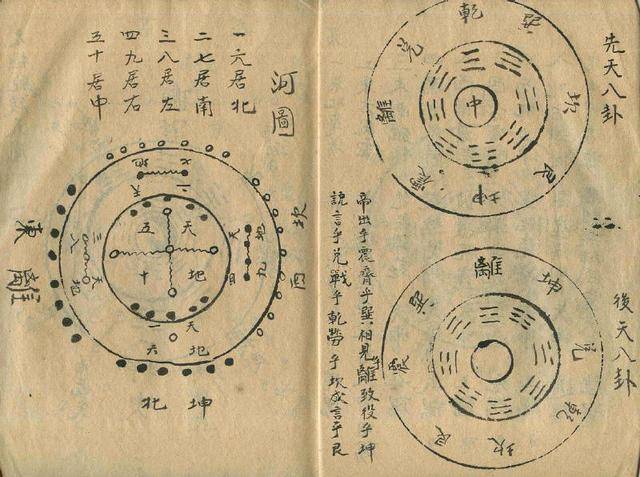 先天八卦
乾
巽
坎
艮
坤
震
離
兌
中
後天八卦
離
坤
兌
乾
坎
艮
震
巽
帝出乎震齊乎巽相見乎離致役乎坤
説言乎兌戰乎乾勞乎坎成言乎艮
河圖
一六居北
二七居南
三八居左
四九居右
五十居中
七地
二天
天五
地十
地九
天四
三天
八地
天一
地六
坎西
東離
北坤